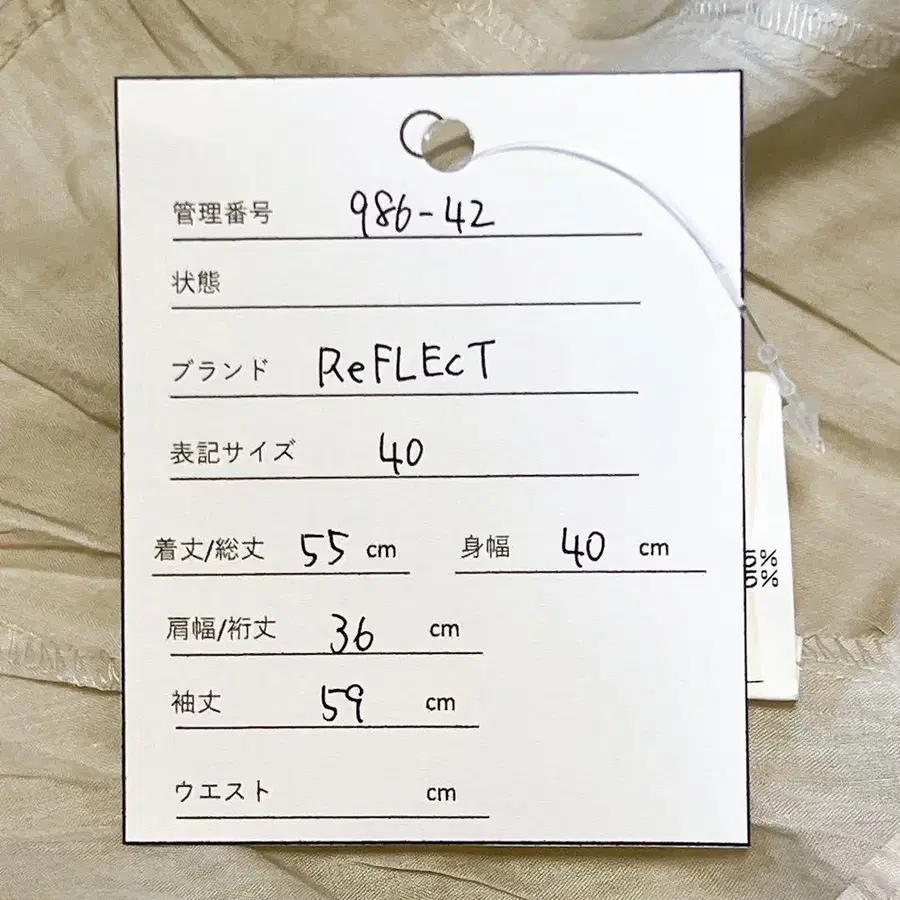 管理番号 986-42
状態
ブランド ReFLEcT
表記サイズ 40
着丈/総丈 55 cm 身幅 40 cm
5%
5%
肩幅/裄丈 36 cm
袖丈 59 cm
ウエスト cm